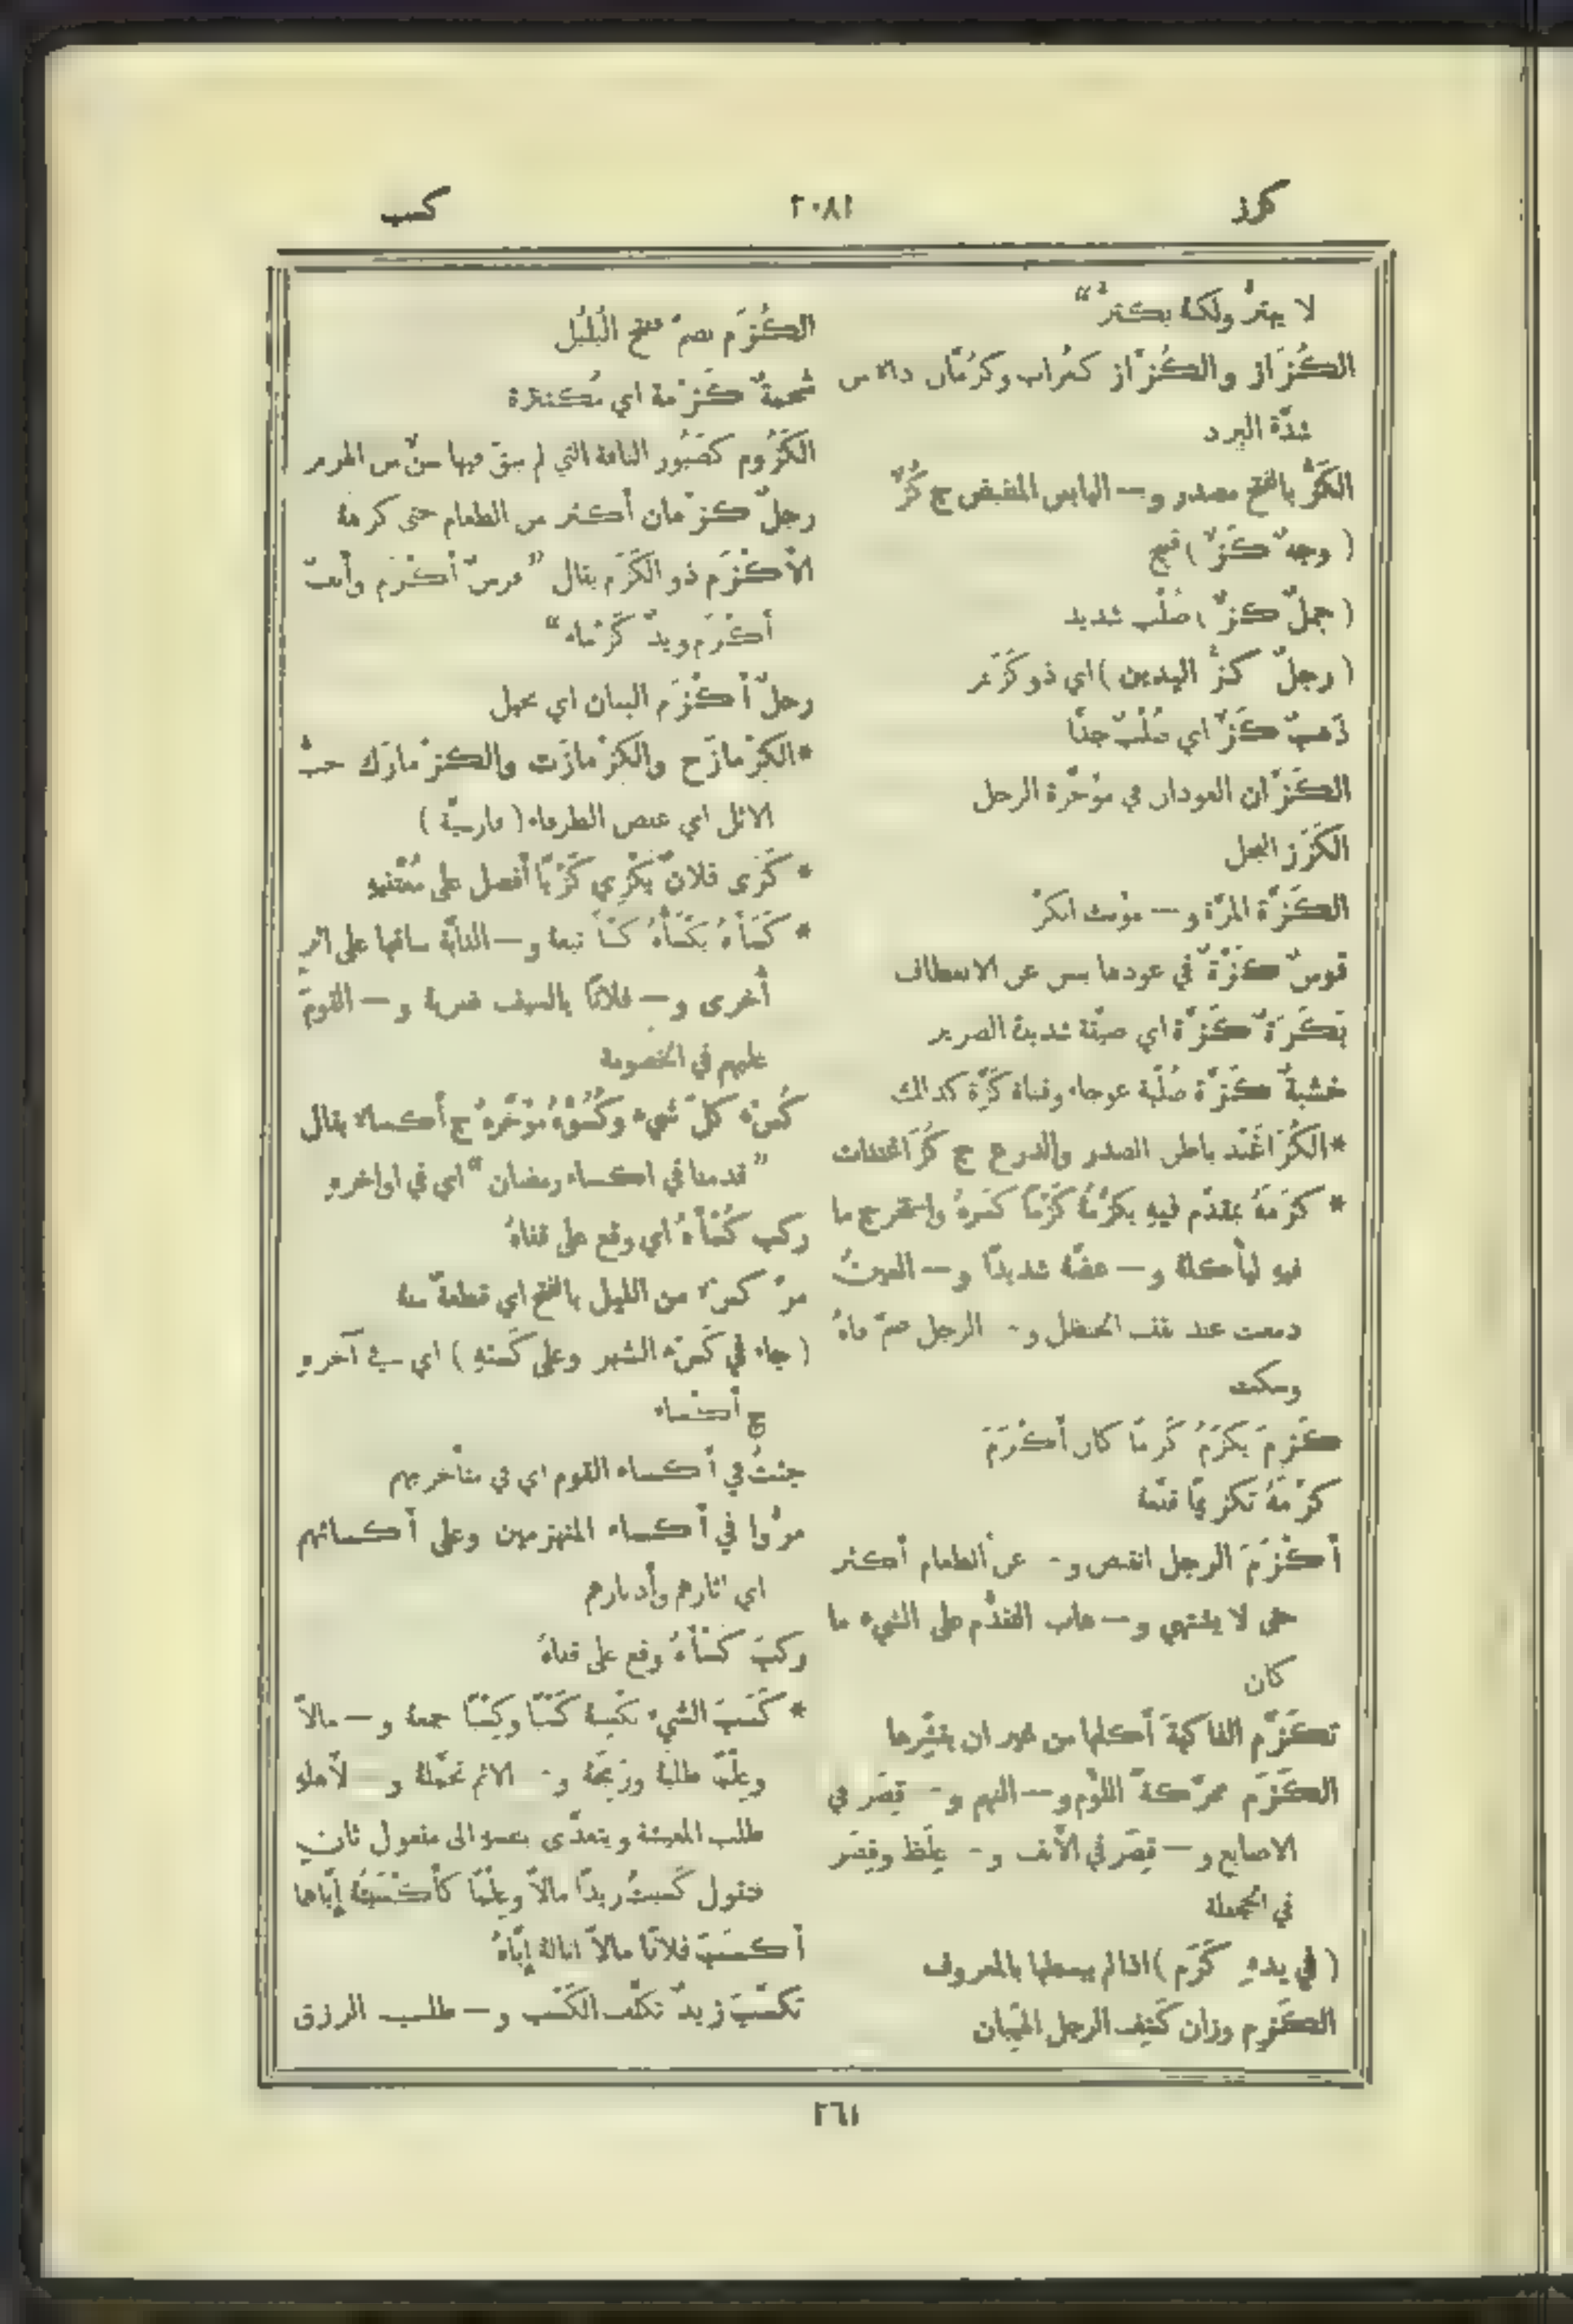 كزز
٢٠٨١
كسب
لا يهتزّ ولكنهُ يكتزّ“
الكُزَاز والكُزّاز كغُراب وكرُمّان داء من
شدّة البرد
الكَزّ بالفتح مصدر و— اليابس المنقبض ج كُزّ
( وجهٌ كَزّ ) قبيح
( جملٌ كزّ ) صُلْب شديد
( رجلٌ كزُّ اليدين ) اي ذو كَزَز
ذهبٌ كَزّ اي صُلْبٌ جدًّا
الكَزّان العودان في مؤخّرة الرحل
الكَزَز البخل
الكَزّة المرّة و— مؤنث الكزّ
قوسٌ كَزّةٌ في عودها يبس عن الانعطاف
بَكَرَةٌ كَزّة اي ضيّقة شديدة الصرير
خشبةٌ كَزّة صُلْبة عوجاء وقناة كَزّة كذلك
*الكُزَاغَنْد باطن الصدر والدرع ج كُزَاغندات
* كزَمَهُ بمقدّم فيهِ يكزُمُهُ كَزْمًا كسَرهُ واستخرج ما
فيهِ ليأكلهُ و— عضّهُ شديدًا و— العينُ
دمعت عند نقف الحنظل و— الرجل ضمّ فاهُ
وسكت
كَزِمَ يكزَمُ كَزَمًا كان أَكْزَمَ
كزّمهُ تكزيمًا قنّعهُ
أَكْزَمَ الرجل انقبض و— عن الطعام أكثر
حتى لا يشتهي و— هاب التقدّم على الشيء ما
كان
تكَزّم الفاكهةَ أكلها من غير ان يقشّرها
الكَزَم محرّكةً اللؤم و— النهم و— قِصَر في
الاصابع و— قِصَر في الأنف و— غِلَظ وقِصَر
في الجحفلة
( في يدهِ كَزَم ) اذا لم يبسطها بالمعروف
الكَزِم وزان كَتِف الرجل الهيّبان
الكُزَم بضمّ ففتح البُلبُل
شحمةٌ كَزْمة اي مكتنزة
الكَزُوم كصَبُور الناقة التي لم يبقَ فيها سنّ من الهرم
رجلٌ كزْمان أكثر من الطعام حتى كرههُ
الأكْزَم ذو الكَزَم يقال ”فرسٌ أكْزَم وأنفٌ
أكْزَم ويدٌ كَزْماء“
رجلٌ أكْزَم البنان اي بخيل
*الكزْمازَج والكزْمازَت والكزْمازَك حبّ
الاثل اي عفص الطرفاء ( فارسيّة )
* كَزَى فلانٌ يَكْزِي كَزْيًا أفضل على مُعْتفيهِ
* كَسَأهُ يَكْسَأُهُ كَسْأً تبعهُ و— الدابّة ساقها على اثر
أُخرى و— فلانًا بالسيف ضربهُ و— القومَ
غلبهم في الخصومة
كُسْء كلّ شيء وكُسُوْءُهُ مؤخّرهُ ج أكساء يقال
”قدمنا في اكساء رمضان“ اي في اواخرهِ
ركب كُسْأهُ اي وقع على قفاهُ
مرّ كسْء من الليل بالفتح اي قطعةٌ منهُ
( جاء في كَسْء الشهر وعلى كَسْئهِ ) اي في آخرهِ
ج أكْساء
جئتُ في أكساء القوم اي في متأخريهم
مرّوا في أكساء المنهزمين وعلى أكسائهم
اي اثارهم وأدبارهم
ركبَ كَسْأهُ وقع على قفاهُ
* كَسَبَ الشيء يكسِبهُ كَسْبًا وكِسْبًا جمعهُ و— مالاً
وعِلْمًا طلبهُ وربحهُ و— الاثم تحمّلهُ و— لأهلهِ
طلب المعيشة ويتعدّى بنفسهِ الى مفعول ثانٍ
فتقول كَسَبتُ زيدًا مالاً وعِلْمًا كأَكْسَبْتُهُ إيّاها
أكسَبَ فلانًا مالاً انالهُ إيّاهُ
تكَسَّبَ زيدٌ تكلّف الكَسْب و— طلب الرزق
٢٦١